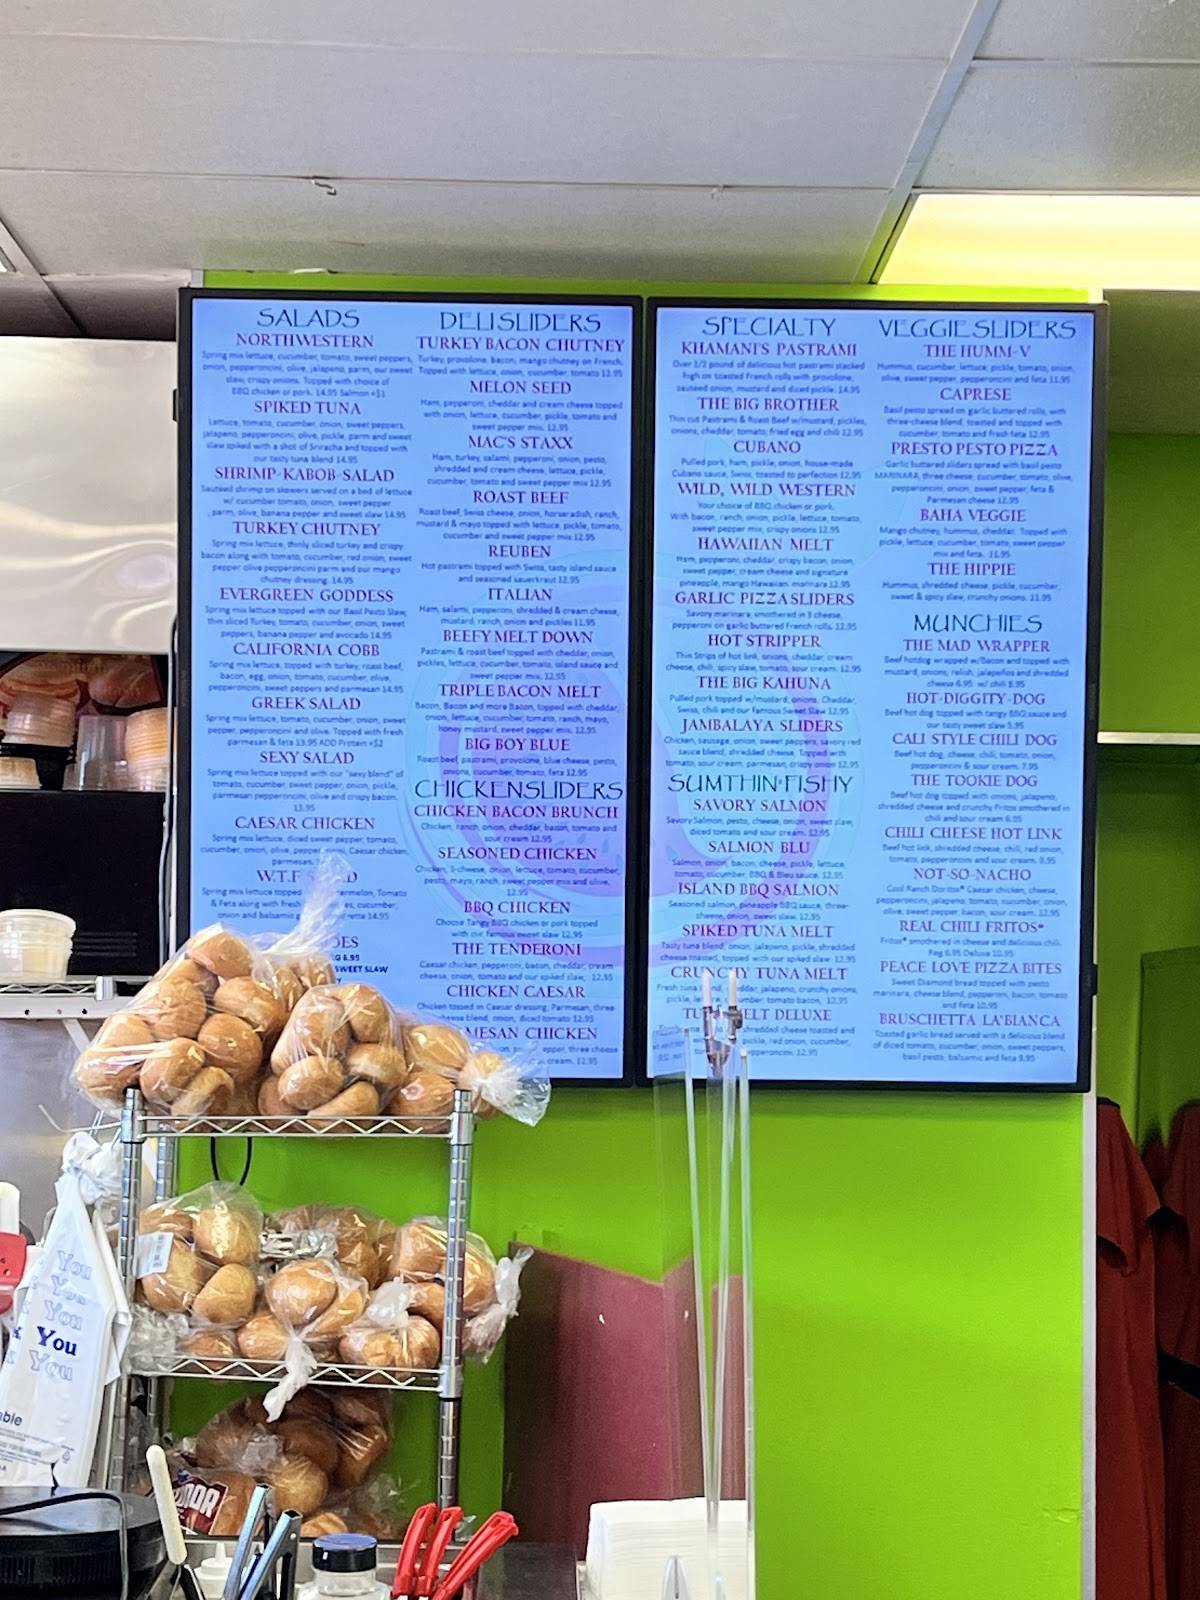 SALADS
NORTHWESTERN
Spring mix lettuce, cucumber, tomato, sweet peppers,
onion, pepperoncini, olive, jalapeno, parm, our sweet
slaw, crispy onions. Topped with choice of
BBQ chicken or pork. 14.95 Salmon +$1
SPIKED TUNA
Lettuce, tomato, cucumber, onion, sweet peppers,
jalapeno, pepperoncini, olive, pickle, parm and sweet
slaw spiked with a shot of Sriracha and topped with
our tasty tuna blend 14.95
SHRIMP-KABOB-SALAD
Sauteed shrimp on skewers served on a bed of lettuce
w/ cucumber tomato, onion, sweet pepper
, parm, olive, banana pepper and sweet slaw 14.95
TURKEY CHUTNEY
Spring mix lettuce, thinly sliced turkey and crispy
bacon along with tomato, cucumber, red onion, sweet
pepper olive pepperoncini parm and our mango
chutney dressing. 14.95
EVERGREEN GODDESS
Spring mix lettuce topped with our Basil Pesto Slaw,
thin sliced Turkey, tomato, cucumber, onion, sweet
peppers, banana pepper and avocado 14.95
CALIFORNIA COBB
Spring mix lettuce, topped with turkey, roast beef,
bacon, egg, onion, tomato, cucumber, olive,
pepperoncini, sweet peppers and parmesan 14.95
GREEK SALAD
Spring mix lettuce, tomato, cucumber, onion, sweet
pepper, pepperoncini and olive. Topped with fresh
parmesan & feta 13.95 ADD Protein +$2
SEXY SALAD
Spring mix lettuce topped with our "sexy blend" of
tomato, cucumber, sweet pepper, onion, pickle,
parmesan pepperoncini, olive and crispy bacon,
13.95
CAESAR CHICKEN
Spring mix lettuce, diced sweet pepper, tomato,
cucumber, onion, olive, pepperoncini, Caesar chicken,
parmesan.
W.T.F
Spring mix lettuce topped Tomato
& Feta along with fresh cucumber,
onion and balsamic 14.95
6.95
SWEET SLAW
DELI SLIDERS
TURKEY BACON CHUTNEY
Turkey, provolone, bacon, mango chutney on French,
Topped with lettuce, onion, cucumber, tomato 12.95
MELON SEED
Ham, pepperoni, cheddar and cream cheese topped
with onion, lettuce, cucumber, pickle, tomato and
sweet pepper mix. 12.95
MAC'S STAXX
Ham, turkey, salami, pepperoni, onion, pesto,
shredded and cream cheese, lettuce, pickle,
cucumber, tomato and sweet pepper mix 12.95
ROAST BEEF
Roast beef, Swiss cheese, onion, horseradish, ranch,
mustard & mayo topped with lettuce, pickle, tomato,
cucumber and sweet pepper mix 12.95
REUBEN
Hot pastrami topped with Swiss, tasty island sauce
and seasoned sauerkraut 12.95
ITALIAN
Ham, salami, pepperoni, shredded & cream cheese,
mustard, ranch, onion and pickles 11.95
BEEFY MELT DOWN
Pastrami & roast beef topped with cheddar, onion,
pickles, lettuce, cucumber, tomato, island sauce and
sweet pepper mix. 12.95
TRIPLE BACON MELT
Bacon, Bacon and more Bacon, topped with cheddar,
onion, lettuce, cucumber, tomato, ranch, mayo,
honey mustard, sweet pepper mix 12.95
BIG BOY BLUE
Roast beef, pastrami, provolone, blue cheese, pesto,
onions, cucumber, tomato, feta 12.95
CHICKEN SLIDERS
CHICKEN BACON BRUNCH
Chicken, ranch, onion, cheddar, bacon, tomato and
sour cream 12.95
SEASONED CHICKEN
Chicken, 3-cheese, onion, lettuce, tomato, cucumber,
pesto, mayo, ranch, sweet pepper mix and olive,
12.95
BBQ CHICKEN
Choose Tangy BBQ chicken or pork topped
with our famous sweet slaw 12.95
THE TENDERONI
Caesar chicken, pepperoni, bacon, cheddar, cream
cheese, onion, tomato and our spiked slaw, 12.95
CHICKEN CAESAR
Chicken tossed in Caesar dressing, Parmesan, three
cheese blend, onion, diced tomato 12.95
MESAN CHICKEN
pepper, three cheese
cream. 12.95
SPECIALTY
KHAMANI'S PASTRAMI
Over 1/2 pound of delicious hot pastrami stacked
high on toasted French rolls with provolone,
sautéed onion, mustard and diced pickle. 14.95
THE BIG BROTHER
Thin cut Pastrami & Roast Beef w/mustard, pickles,
onions, cheddar, tomato, fried egg and chili 12.95
CUBANO
Pulled pork, ham, pickle, onion, house-made
Cubano sauce, Swiss, toasted to perfection 12.95
WILD, WILD WESTERN
Your choice of BBQ chicken or pork.
With bacon, ranch, onion, pickle, lettuce, tomato,
sweet pepper mix, crispy onions 12.95
HAWAIIAN MELT
Ham, pepperoni, cheddar, crispy bacon, onion,
sweet pepper, cream cheese and signature
pineapple, mango Hawaiian marinara 12.95
GARLIC PIZZA SLIDERS
Savory marinara, smothered in 3 cheese,
pepperoni on garlic buttered French rolls. 12.95
HOT STRIPPER
Thin Strips of hot link, onions, cheddar, cream
cheese, chili, spicy slaw, tomato, sour cream. 12.95
THE BIG KAHUNA
Pulled pork topped w/mustard, onions, Cheddar,
Swiss, chili and our famous Sweet Slaw 12.95
JAMBALAYA SLIDERS
Chicken, sausage, onion, sweet peppers, savory red
sauce blend, shredded cheese, Topped with
tomato, sour cream, parmesan, crispy onion 12.95
SUMTHIN'FISHY
SAVORY SALMON
Savory Salmon, pesto, cheese, onion, sweet slaw,
diced tomato and sour cream. 12.95
SALMON BLU
Salmon, onion, bacon, cheese, pickle, lettuce,
tomato, cucumber, BBQ & Bleu sauce. 12.95
ISLAND BBQ SALMON
Seasoned salmon, pineapple BBQ sauce, three-
cheese, onion, sweet slaw. 12.95
SPIKED TUNA MELT
Tasty tuna blend, onion, jalapeno, pickle, shredded
cheese toasted, topped with our spiked slaw 12.95
CRUNCHY TUNA MELT
Fresh tuna blend, cheddar, jalapeno, crunchy onions,
pickle, lettuce, cucumber, tomato, bacon, 12.95
MELT DELUXE
shredded cheese toasted and
pickle, red onion, cucumber,
pepperoncini, 12.95
VEGGIE SLIDERS
THE HUMM-V
Hummus, cucumber, lettuce, pickle, tomato, onion,
olive, sweet pepper, pepperoncini and feta 11.95
CAPRESE
Basil pesto spread on garlic buttered rolls, with
three-cheese blend, toasted and topped with
cucumber, tomato and fresh feta 12.95
PRESTO PESTO PIZZA
Garlic buttered sliders spread with basil pesto
MARINARA, three cheese, cucumber, tomato, olive,
pepperoncini, onion, sweet pepper, feta &
Parmesan cheese 12.95
BAHA VEGGIE
Mango chutney, hummus, cheddar. Topped with
pickle, lettuce, cucumber, tomato, sweet pepper
mix and feta. 11.95
THE HIPPIE
Hummus, shredded cheese, pickle, cucumber,
sweet & spicy slaw, crunchy onions. 11.95
MUNCHIES
THE MAD WRAPPER
Beef hotdog wrapped w/bacon and topped with
mustard, onions, relish, jalapeños and shredded
cheese 6.95 w/ chili 8.95
HOT-DIGGITY-DOG
Beef hot dog topped with tangy BBQ sauce and
our tasty sweet slaw 5.95
CALI STYLE CHILI DOG
Beef hot dog, cheese, chili, tomato, onion,
pepperoncini & sour cream. 7.95
THE TOOKIE DOG
Beef hot dog topped with onions, jalapeno,
shredded cheese and crunchy Fritos smothered in
chili and sour cream 6.95
CHILI CHEESE HOT LINK
Beef hot link, shredded cheese, chili, red onion,
tomato, pepperoncini and sour cream. 8.95
NOT-SO-NACHO
Cool Ranch Doritos® Caesar chicken, cheese,
pepperoncini, jalapeno, tomato, cucumber, onion,
olive, sweet pepper, bacon, sour cream. 12.95
REAL CHILI FRITOS®
Fritos® smothered in cheese and delicious chili.
Reg 6.95 Deluxe 10.95
PEACE LOVE PIZZA BITES
Sweet Diamond bread topped with pesto
marinara, cheese blend, pepperoni, bacon, tomato
and feta 10.95
BRUSCHETTA LA'BIANCA
Toasted garlic bread served with a delicious blend
of diced tomato, cucumber, onion, sweet peppers,
basil pesto, balsamic and feta 9.95
You
You
You
You
You